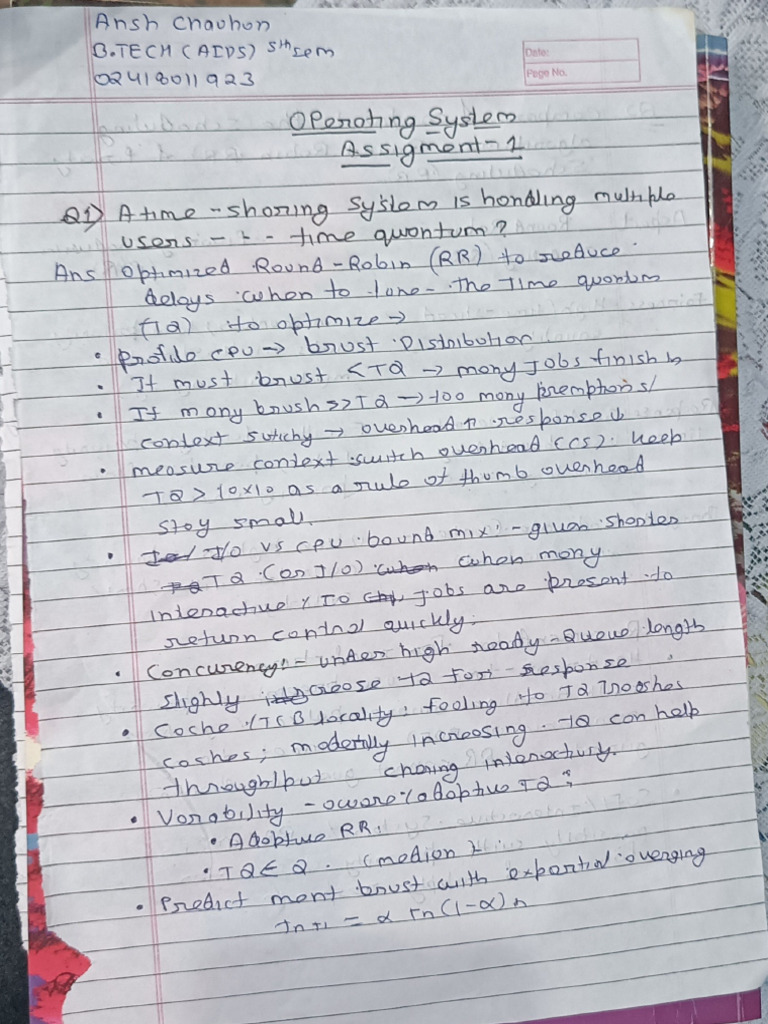 Ansh Chauhan
B.TECH (AIDS) 5th Sem
02418011923
Date:
Page No.
Operating System
Assigment-1
Q1) A time-sharing System is handling multiple
users - - - time quantum?
Ans Optimized Round-Robin (RR) to reduce
delays when to tune - the Time quantum
(TQ) to optimize →
• Profile CPU → brust Distribution
• If must brust < TQ → many jobs finish
• If many brush >> TQ → too many premptions/
context → overhead ↑ response ↓
• measure context switch overhead (CS). keep
TQ > 10x10 as a rule of thumb overhead
stay small.
• I/O vs CPU bound mix:- given shorter
TQ (or I/O) when many
interactive / IO jobs are present to
return control quickly.
• Concurency:- under high ready-Queue length
slightly increose TQ for response
• Cache /TCB locality: fooling to TQ
cashes; increasing TQ can help
throughlput interactivity.
• Varability - aware / adaptive TQ:
• Adaptive RR.
• TQ ∈ Q. (median
• Predict ment brust with averging
tn+1 = α tn(1-α)n